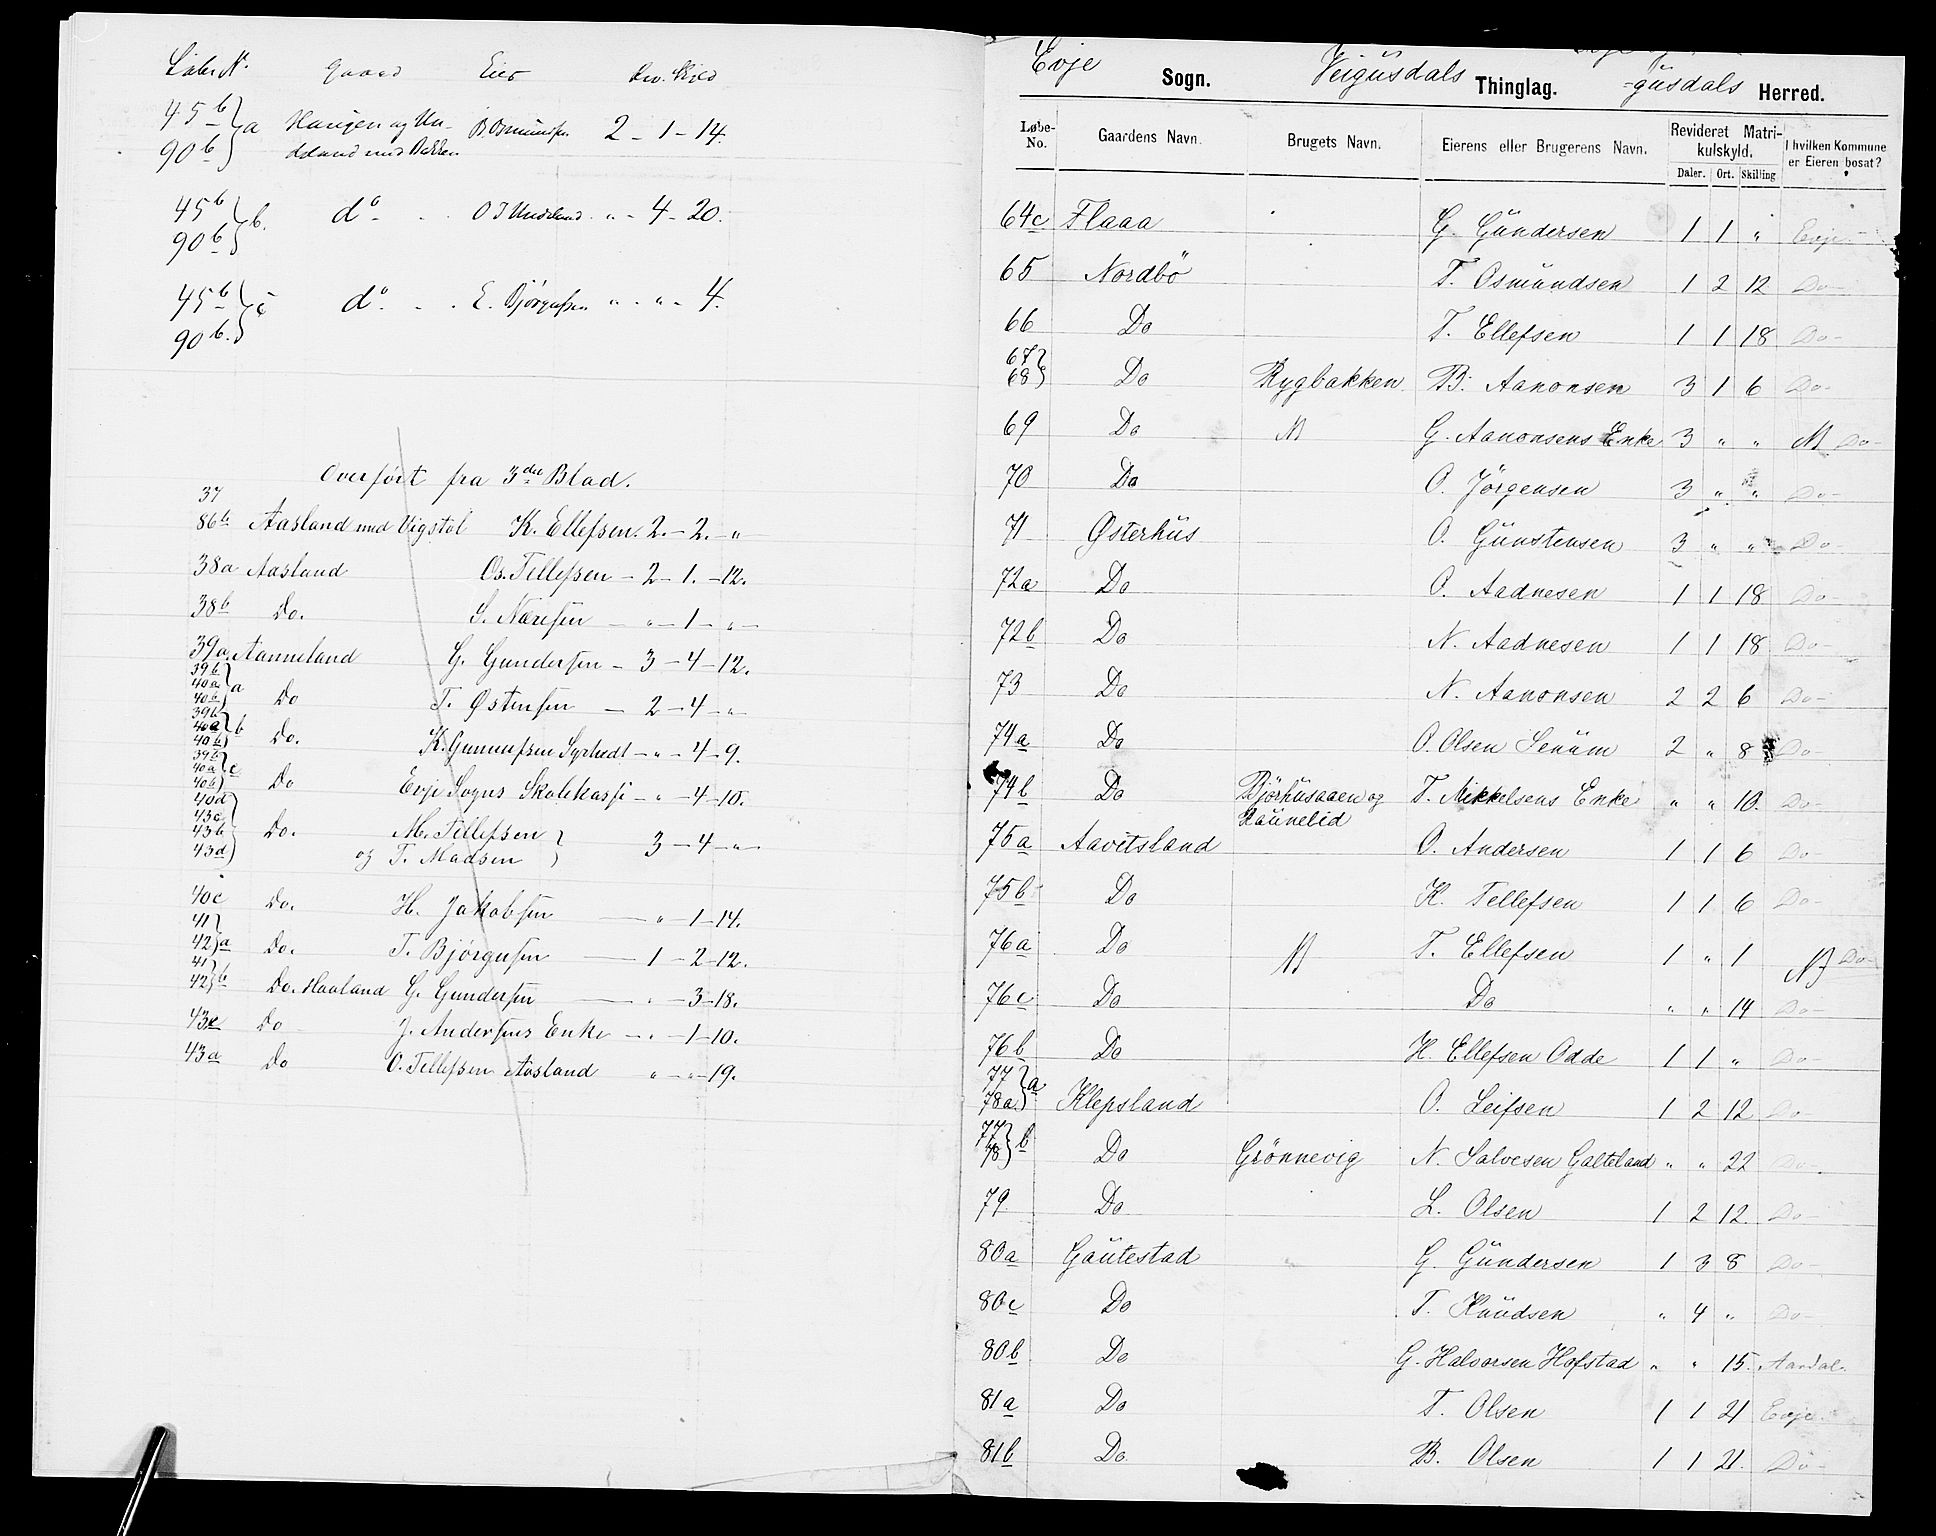 Løbe N. Gaard Eier Rev. Skyld
45b 90b } a Haugen og Un-
dsland med Bakken B Osmundsen 2 - 1 - 14.
45b 90b } b. do - . O T Undsland „ - 4 - 20.
45b 90b. } c do - . E. Bjørgufsen „ - „ - 4.
Overført fra 3die Blad.
37
86b Aasland med Vigstøl K. Ellefsen. 2. - 2. - „
38a Aasland Os. Tellefsen - 2 - 1. - 12.
38b Do. S. Næresen - „ - 1 - „ -
39a Aanneland G. Gundersen - 3 - 4 - 12.
39b 40a 40b } a Do T. Østensen - 2 - 4 - „
39b 40a 40b } b Do. K. Gunnufsen Syrtveit - „ - 4 - 9.
39b 40a 40b } c Do Evje Sogns Skolekasse - „ - 4 - 10.
40d 43c 43b 43d } Do. M. Tellefsen
og T. Madsen } 3 - 4 - „
40c Do. H. Jakobsen - „ - 1 - 14.
41 42 } a Do. T. Bjørgufsen - 1 - 2 - 12.
41 42 } b Do. Haaland G. Gundersen - „ - 3 - 18.
43c Do J. Andersens Enke - „ - 1 - 10.
43a Do O. Tellefsen Aasland „ - „ - 19.
Evje Sogn. Veigusdals Thinglag. -gusdals Herred.
Løbe-No. Gaardens Navn. Brugets Navn. Eierens eller Brugerens Navn. Revideret Matri-kulskyld. I hvilken Kommune er Eieren bosat?
Daler. Ort. Skilling
64c Flaaa G. Gundersen 1 1 „ Evje -
65 Nordbö T. Osmundsen 1 2 12 Do -
66 Do T. Ellefsen 1 1 18 Do -
67 68 } Do Rygbakken B. Aanonsen 3 1 6 Do -
69 Do G. Aanonsens Enke 3 „ „ Do -
70 Do O. Jörgensen 3 „ „ Do -
71 Østerhus O. Gunstensen 3 „ „ Do -
72a Do O. Aadnesen 1 1 18 Do -
72b Do N. Aadnesen 1 1 18 Do -
73 Do N. Aanonsen 2 2 6 Do -
74a Do O. Olsen Senum 2 „ 8 Do -
74b Do Bjørhusaaen og
Raunelid T. Mikkelsens Enke „ „ 10. Do -
75a Aavitsland O. Andersen 1 1 6 Do
75b Do K. Tellefsen 1 1 6 Do -
76a Do T. Ellefsen 1 „ 1 Do -
76c Do Do „ „ 14 Do -
76b Do H. Ellefsen Odde 1 1 „ Do -
77 78a } a Klepsland O. Leifsen 1 2 12 Do -
77 78 } b Do Grönnevig N. Salvesen Galteland „ „ 22 Do -
79 Do L. Olsen 1 2 12. Do -
80a Gautestad G. Gundersen 1 3 8 Do -
80c Do T. Knudsen „ 4 „ Do -
80b Do G. Halvorsen Hofstad „ „ 15. Aardal.
81a Do T. Olsen 1 1 21 Evje -
81b Do B. Olsen 1 1 21. Do -